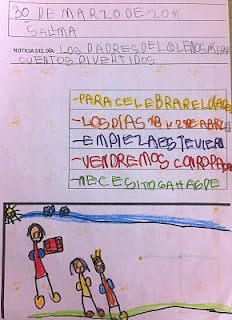 30 DE MARZO DE 2011
SALMA
NOTICIA DEL DÍA: LOS PADRES DEL COLE NOS
CUENTOS DIVERTIDOS
-PARA CELEBRAR EL DÍA
-LOS DÍAS 1 Y 2 DE ABRIL
-EMPIEZA ESTE VIERN
-VENDREMOS CON
-NECESITO GAFAS DE